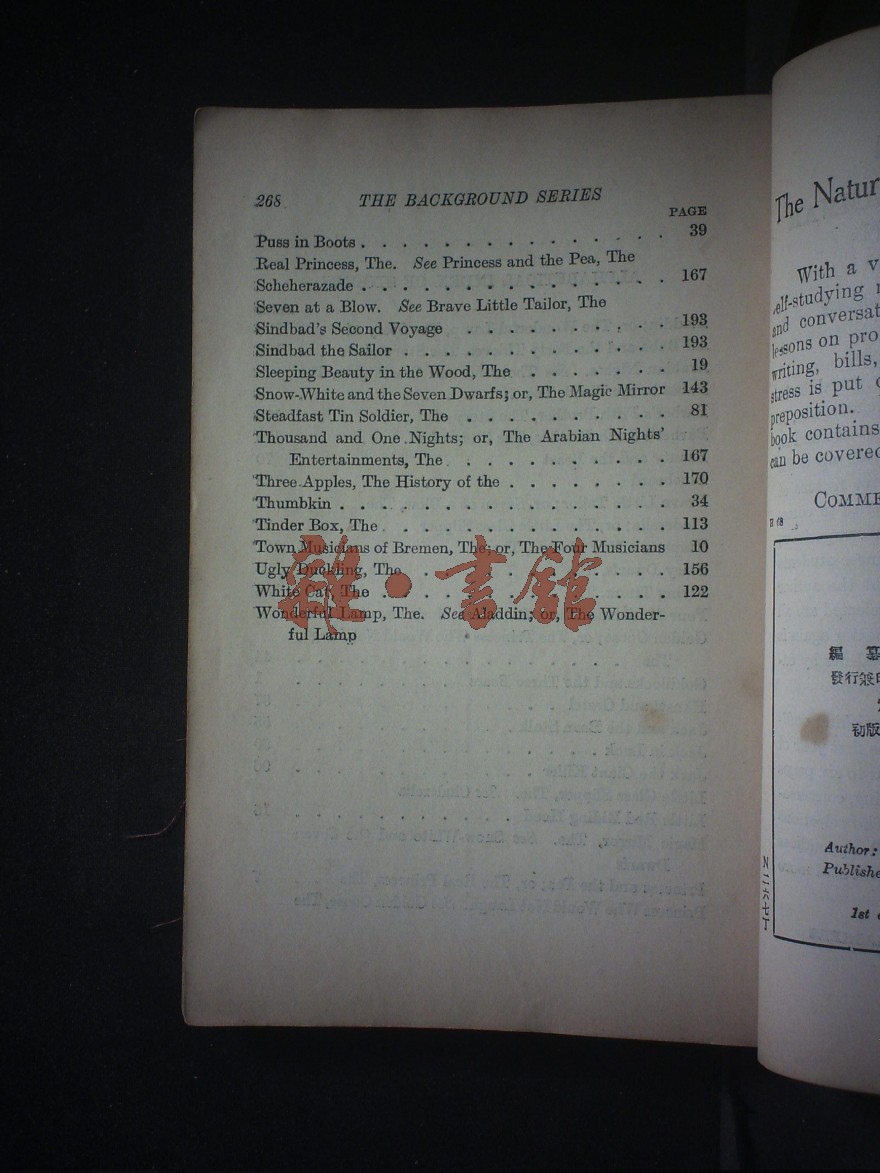 268 THE BACKGROUND SERIES
PAGE
Puss in Boots . . . . . . . . . . . . . . . 39
Real Princess, The. See Princess and the Pea, The
Scheherazade . . . . . . . . . . . . . . . 167
Seven at a Blow. See Brave Little Tailor, The
Sindbad's Second Voyage . . . . . . . . . . 193
Sindbad the Sailor . . . . . . . . . . . . . 193
Sleeping Beauty in the Wood, The . . . . . . . 19
Snow-White and the Seven Dwarfs; or, The Magic Mirror 143
Steadfast Tin Soldier, The . . . . . . . . . . 81
Thousand and One Nights; or, The Arabian Nights'
Entertainments, The . . . . . . . . . . . 167
Three Apples, The History of the . . . . . . . . 170
Thumbkin . . . . . . . . . . . . . . . . 34
Tinder Box, The . . . . . . . . . . . . . . 113
Town Musicians of Bremen, The; or, The Four Musicians 10
Ugly Duckling, The . . . . . . . . . . . . . 156
White Cat, The . . . . . . . . . . . . . . 122
Wonderful Lamp, The. See Aladdin; or, The Wonder-
ful Lamp
雜·書館
The Natur
With a v
elf-studying
and conversat
lessons on pro
writing, bills,
stress is put
preposition.
book contains
can be covered
COMME
編 纂
發行兼印
初版
Author:
Publishe
1st
N二六七丁